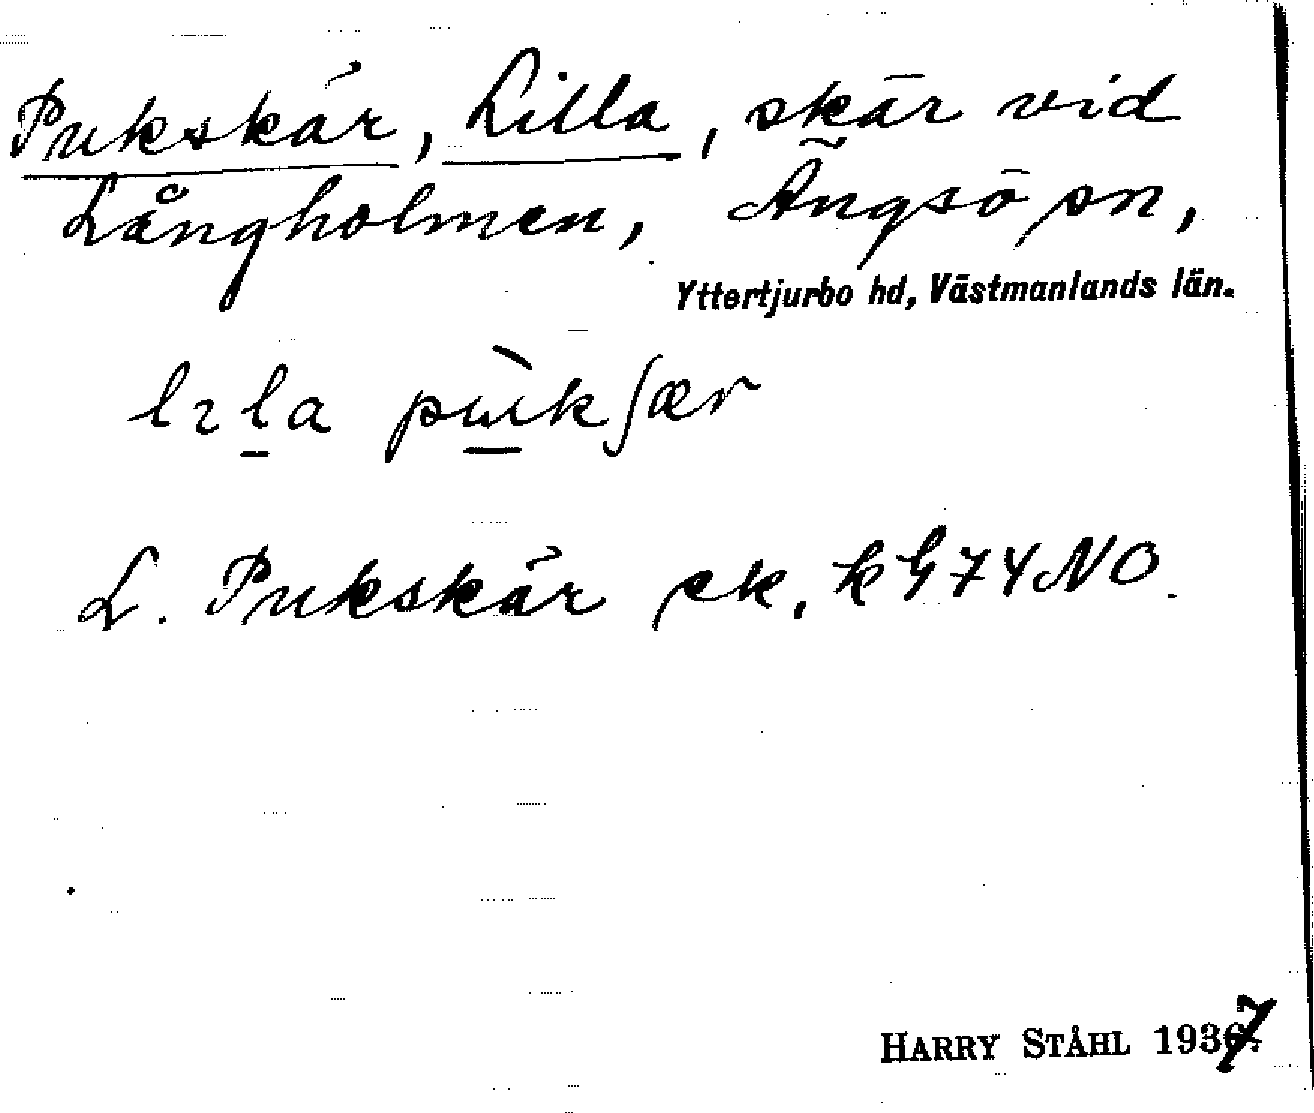 Pukskär, Lilla, skär vid
Långholmen, Ängsö sn,
Yttertjurbo hd, Västmanlands län.
lɩla pùkʃær
L. Pukskär ek,
HARRY STÅHL 1937